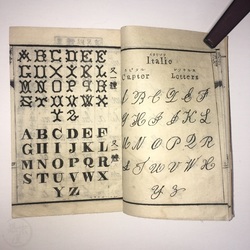 又一種
ABCDEF
GHIJKL
MNOPQR
STUVWX
YZ
又一種
ABCDEF
GHIJKL
MNOPQR
STUVWX
YZ
Italic
Captor Letters
A B C D E F
G H I J K L
M N O P Q R
S T U V W X
Y Z